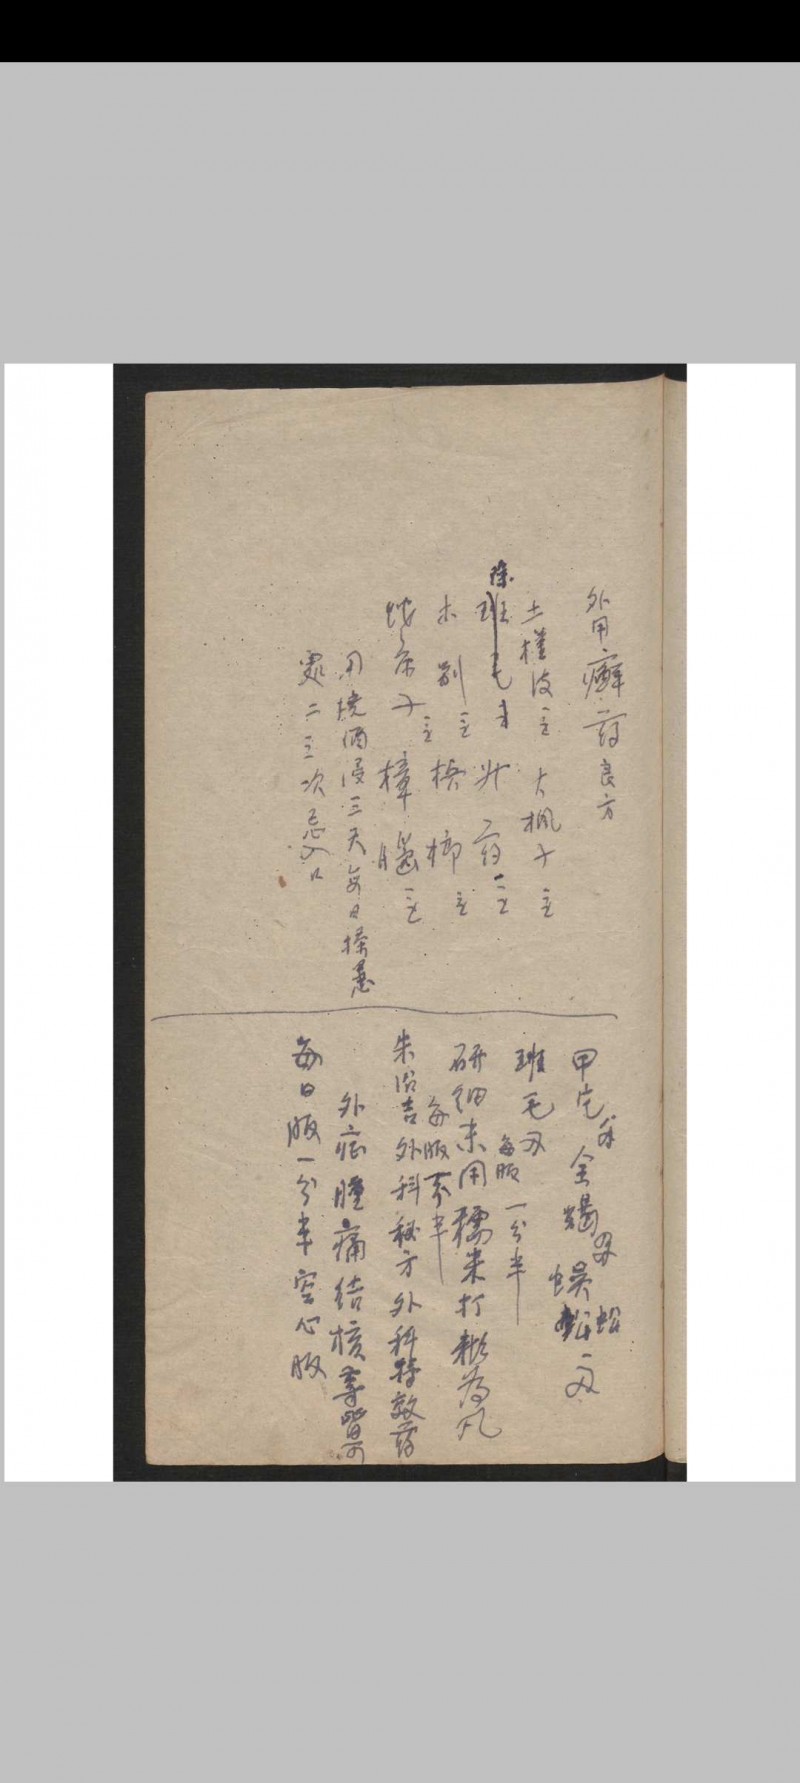 外用癣药良方
土槿皮三 大枫子三
除
班毛 业药三
木别三 梹榔三
蛇床子三 樟腦三
用烧酒浸三天每日搽患
處二三次忌入口
甲 全蝎 蜈蚣一
班毛 每服一分半
研細末用糯米打粉為丸
每服一分半
朱 吉外科秘方外科特效药
外症腫痛结核等皆可
每日服一分半空心服